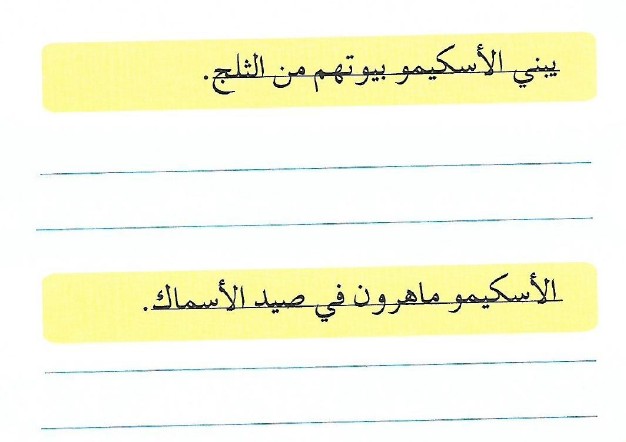 يبني الأسكيمو بيوتهم من الثلج.
الأسكيمو ماهرون في صيد الأسماك.